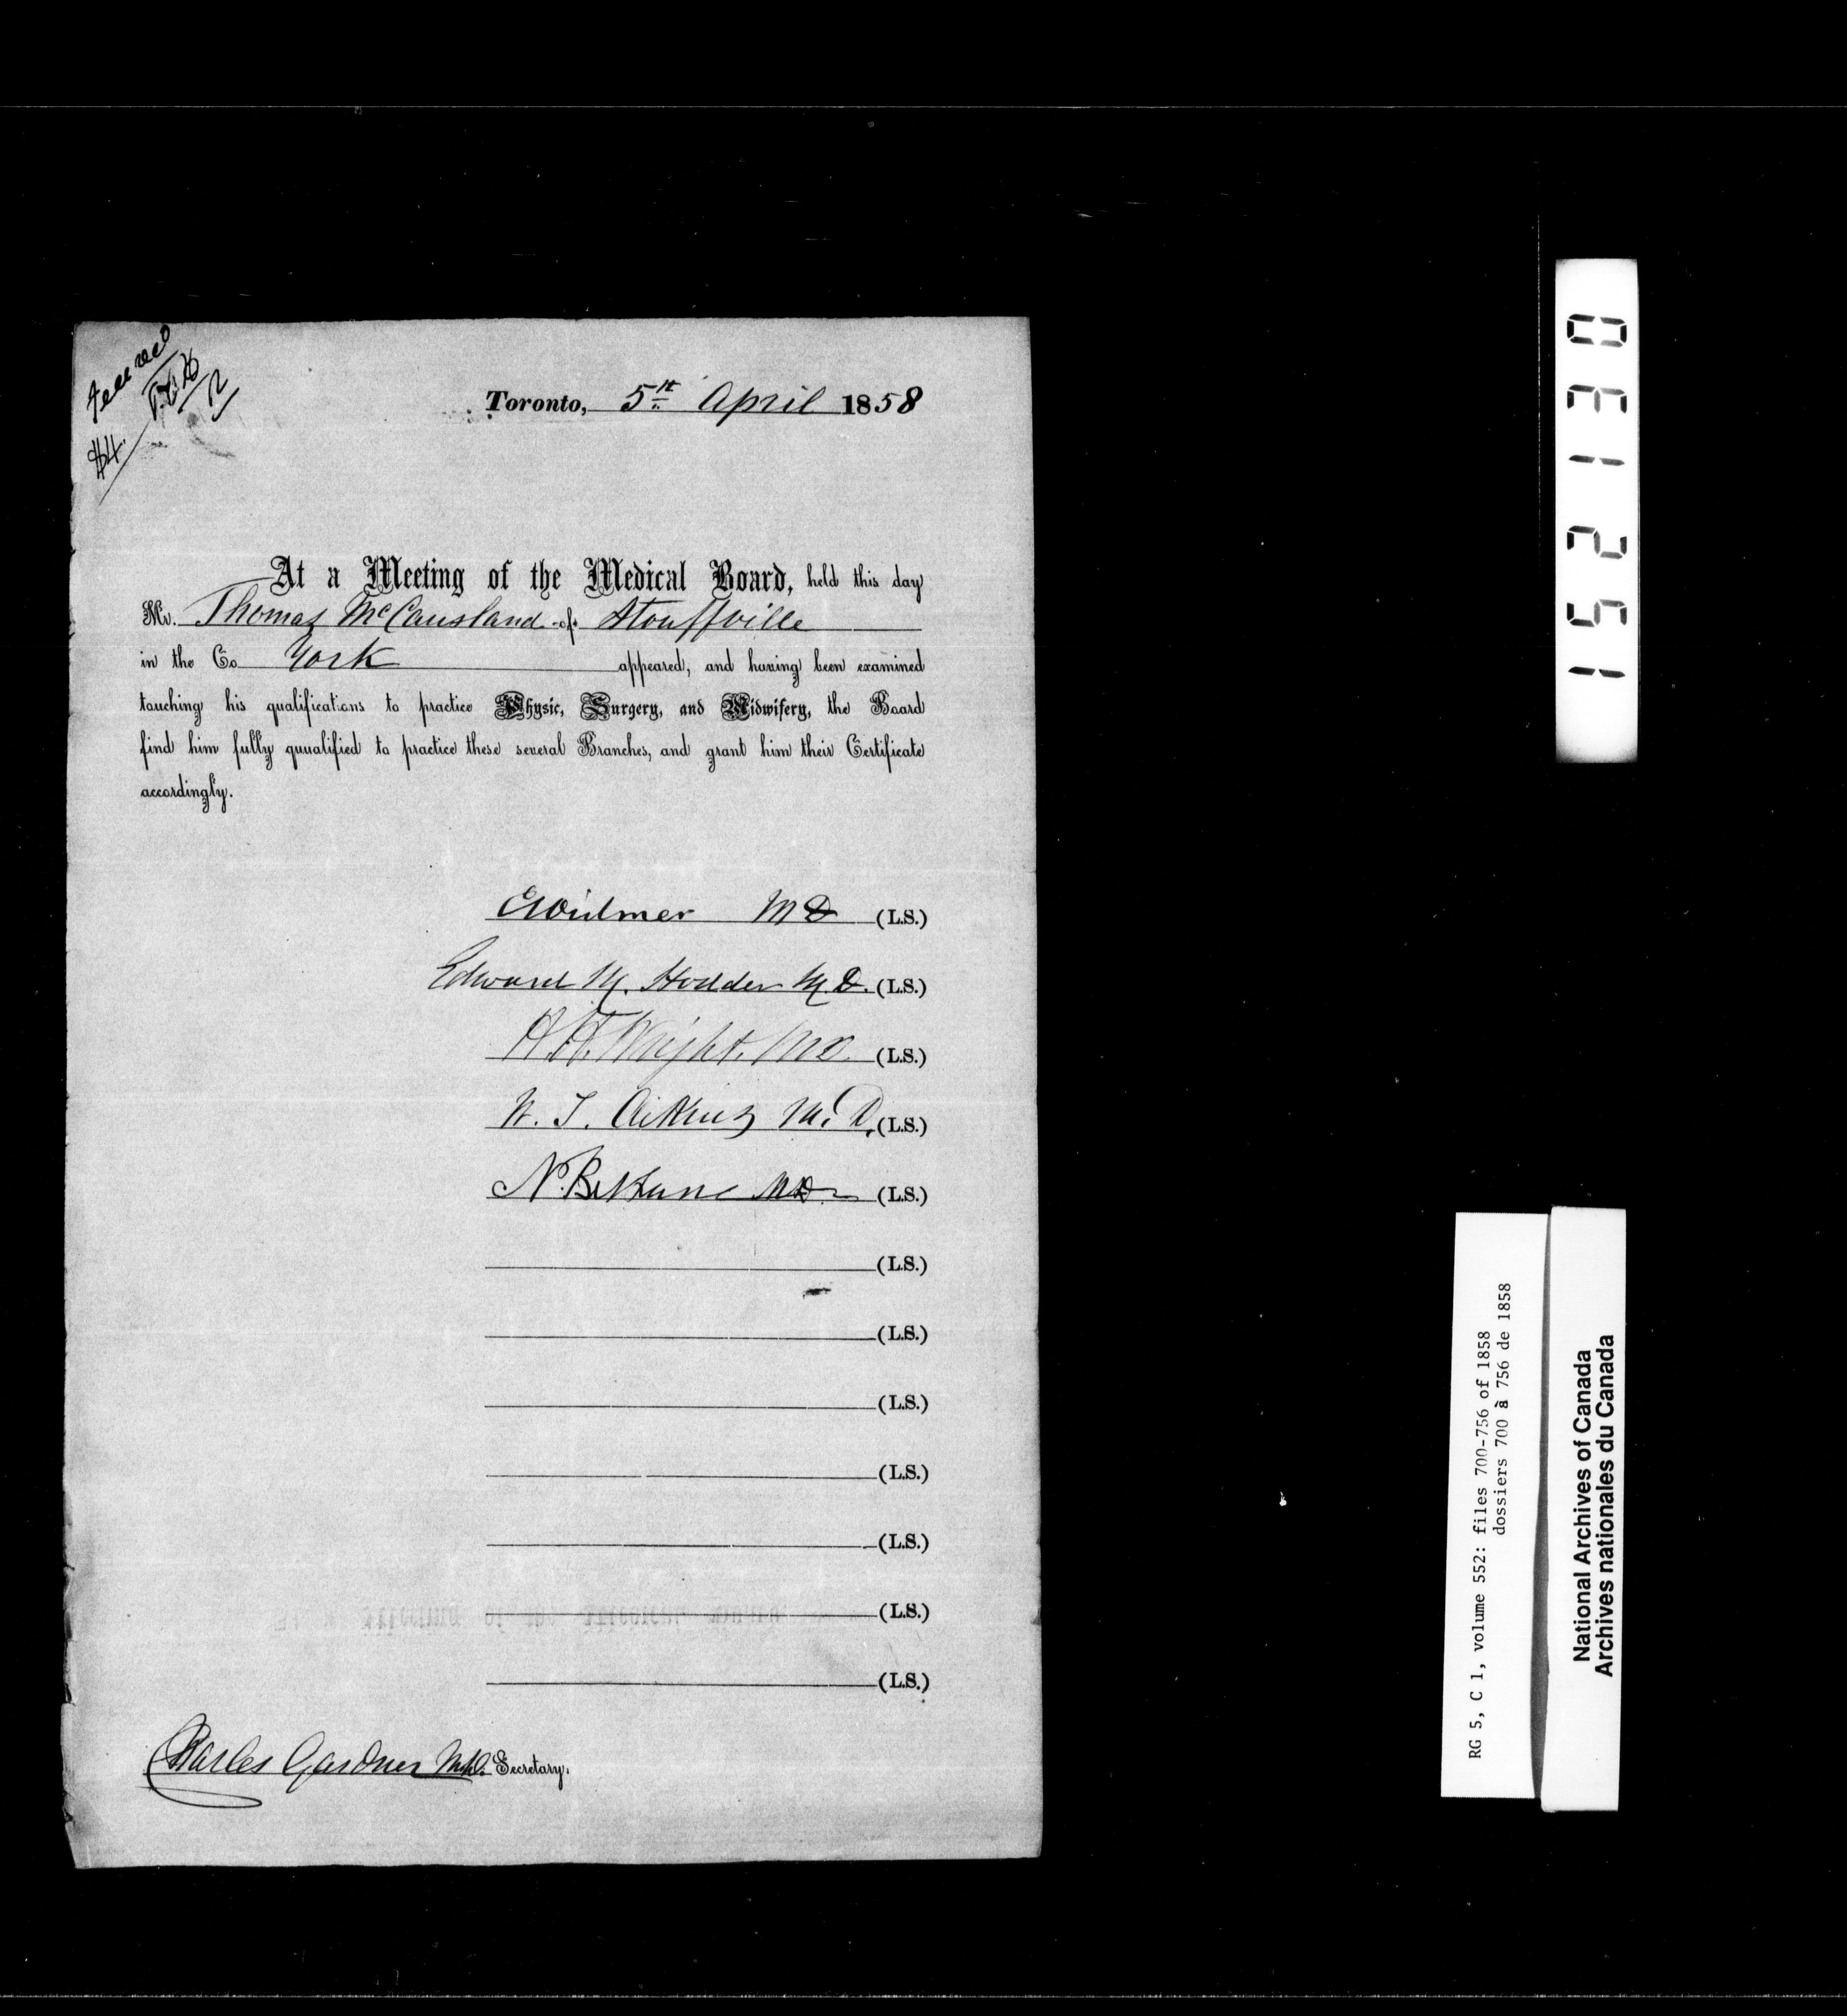 $4.
Toronto, 5th April 1858
At a Meeting of the Medical Board, held this day
Mr. Thomas McCausland of Stouffville
in the Co York appeared, and having been examined
touching his qualifications to practice Physic, Surgery, and Midwifery, the Board
find him fully quualified to practice these several Branches, and grant him their Certificate
accordingly.
C Widmer MD (L.S.)
Edward M. Hodder M.D. (L.S.)
H.H. Wright. MD. (L.S.)
W. T. Aikins M.D. (L.S.)
N. Bethune MD. (L.S.)
(L.S.)
(L.S.)
(L.S.)
(L.S.)
(L.S.)
(L.S.)
(L.S.)
Charles Gardner M.D. Secretary.
152130
RG 5, C 1, volume 552: files 700-756 of 1858
dossiers 700 à 756 de 1858
National Archives of Canada
Archives nationales du Canada